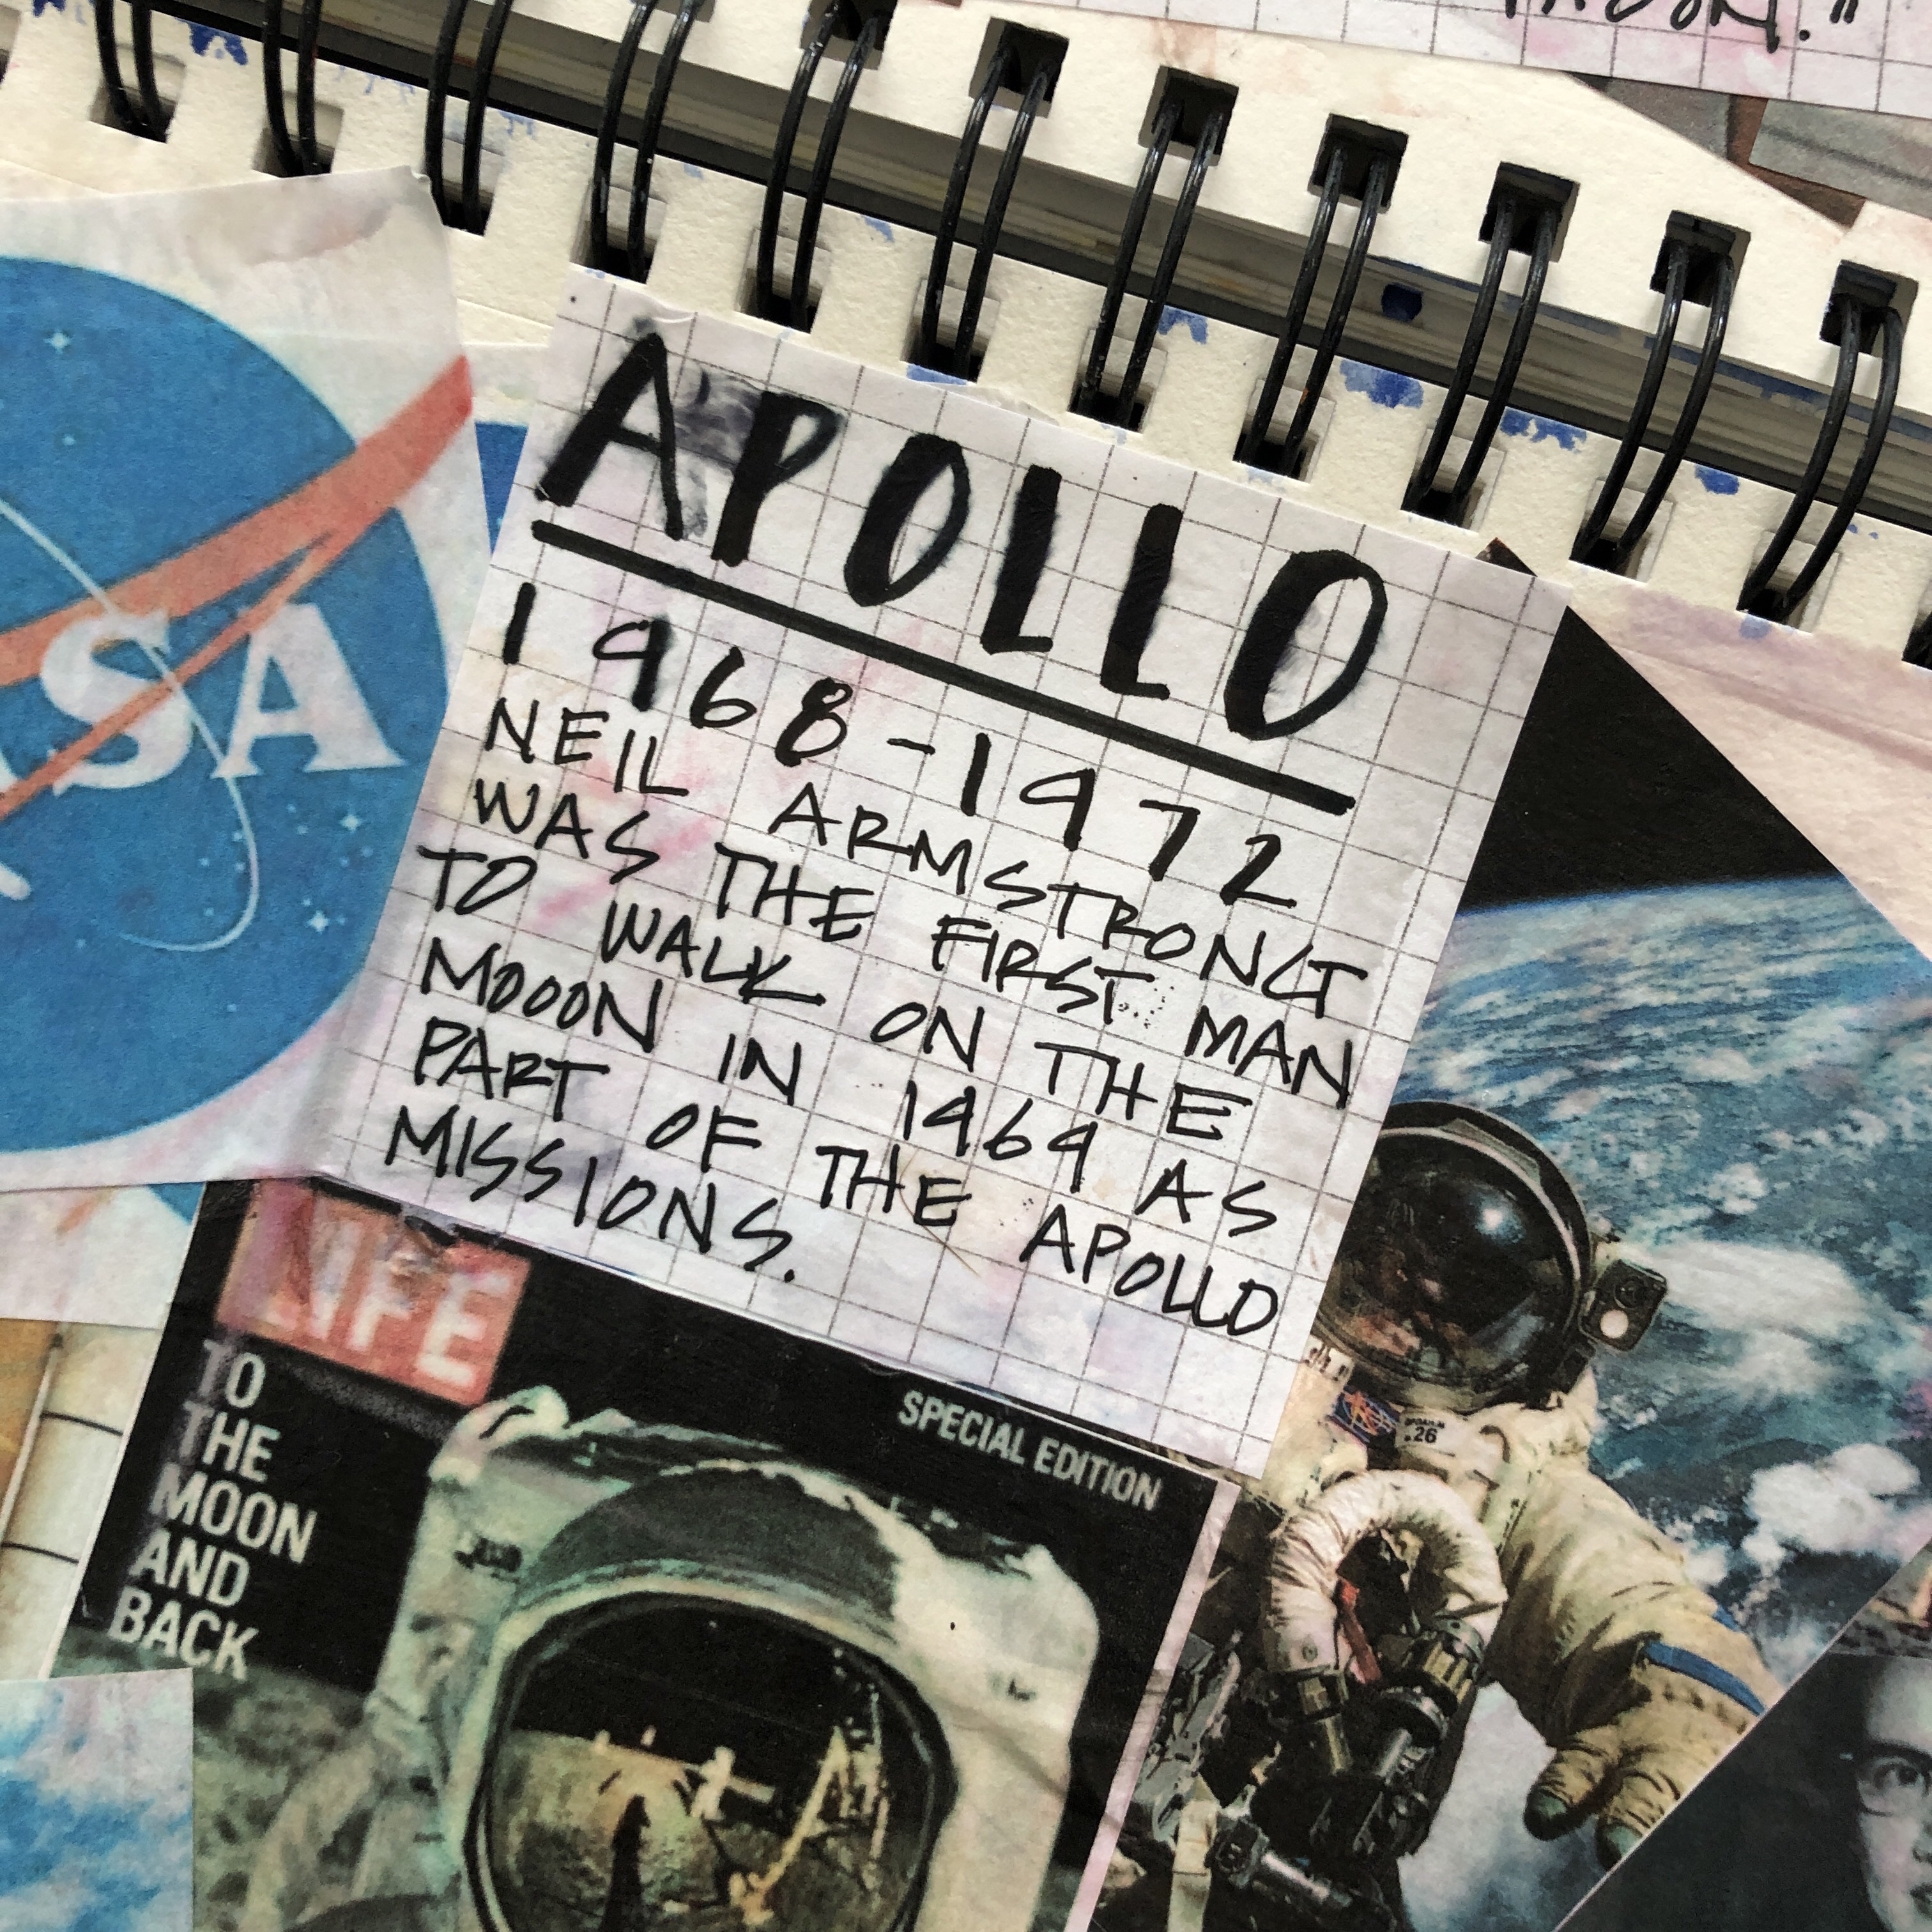 APOLLO
1968-1972
NEIL ARMSTRONG
WAS THE FIRST MAN
TO WALK ON THE
MOOON IN 1969 AS
PART OF THE APOLLO
MISSIONS.
SA
LIFE
TO
THE
MOON
AND
BACK
SPECIAL EDITION
26